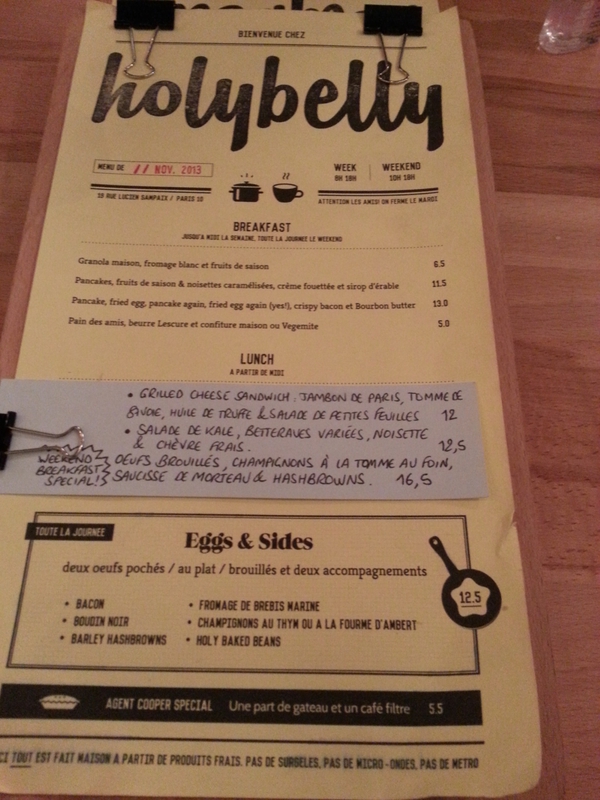 BIENVENUE CHEZ
holybelly
MENU DE // NOV. 2013
WEEK
8H 18H
WEEKEND
10H 18H
19 RUE LUCIEN SAMPAIX / PARIS 10
ATTENTION LES AMIS! ON FERME LE MARDI
BREAKFAST
JUSQU'A MIDI LA SEMAINE, TOUTE LA JOURNEE LE WEEKEND
Granola maison, fromage blanc et fruits de saison 6.5
Pancakes, fruits de saison & noisettes caramélisées, crème fouettée et sirop d'érable 11.5
Pancake, fried egg, pancake again, fried egg again (yes!), crispy bacon et Bourbon butter 13.0
Pain des amis, beurre Lescure et confiture maison ou Vegemite 5.0
LUNCH
A PARTIR DE MIDI
• GRILLED CHEESE SANDWICH : JAMBON DE PARIS, TOMME DE
SAVOIE, HUILE DE TRUFFE & SALADE DE PETITES FEUILLES 12
• SALADE DE KALE, BETTERAVES VARIÉES, NOISETTE
& CHÈVRE FRAIS. 12,5
WEEKEND
BREAKFAST
SPECIAL!
OEUFS BROUILLÉS, CHAMPIGNONS À LA TOMME AU FOIN,
SAUCISSE DE MORTEAU & HASHBROWNS. 16,5
TOUTE LA JOURNEE
Eggs & Sides
deux oeufs pochés / au plat / brouillés et deux accompagnements
12.5
• BACON
• BOUDIN NOIR
• BARLEY HASHBROWNS
• FROMAGE DE BREBIS MARINE
• CHAMPIGNONS AU THYM OU A LA FOURME D'AMBERT
• HOLY BAKED BEANS
AGENT COOPER SPECIAL Une part de gateau et un café filtre 5.5
CI TOUT EST FAIT MAISON A PARTIR DE PRODUITS FRAIS. PAS DE SURGELES, PAS DE MICRO-ONDES, PAS DE METRO